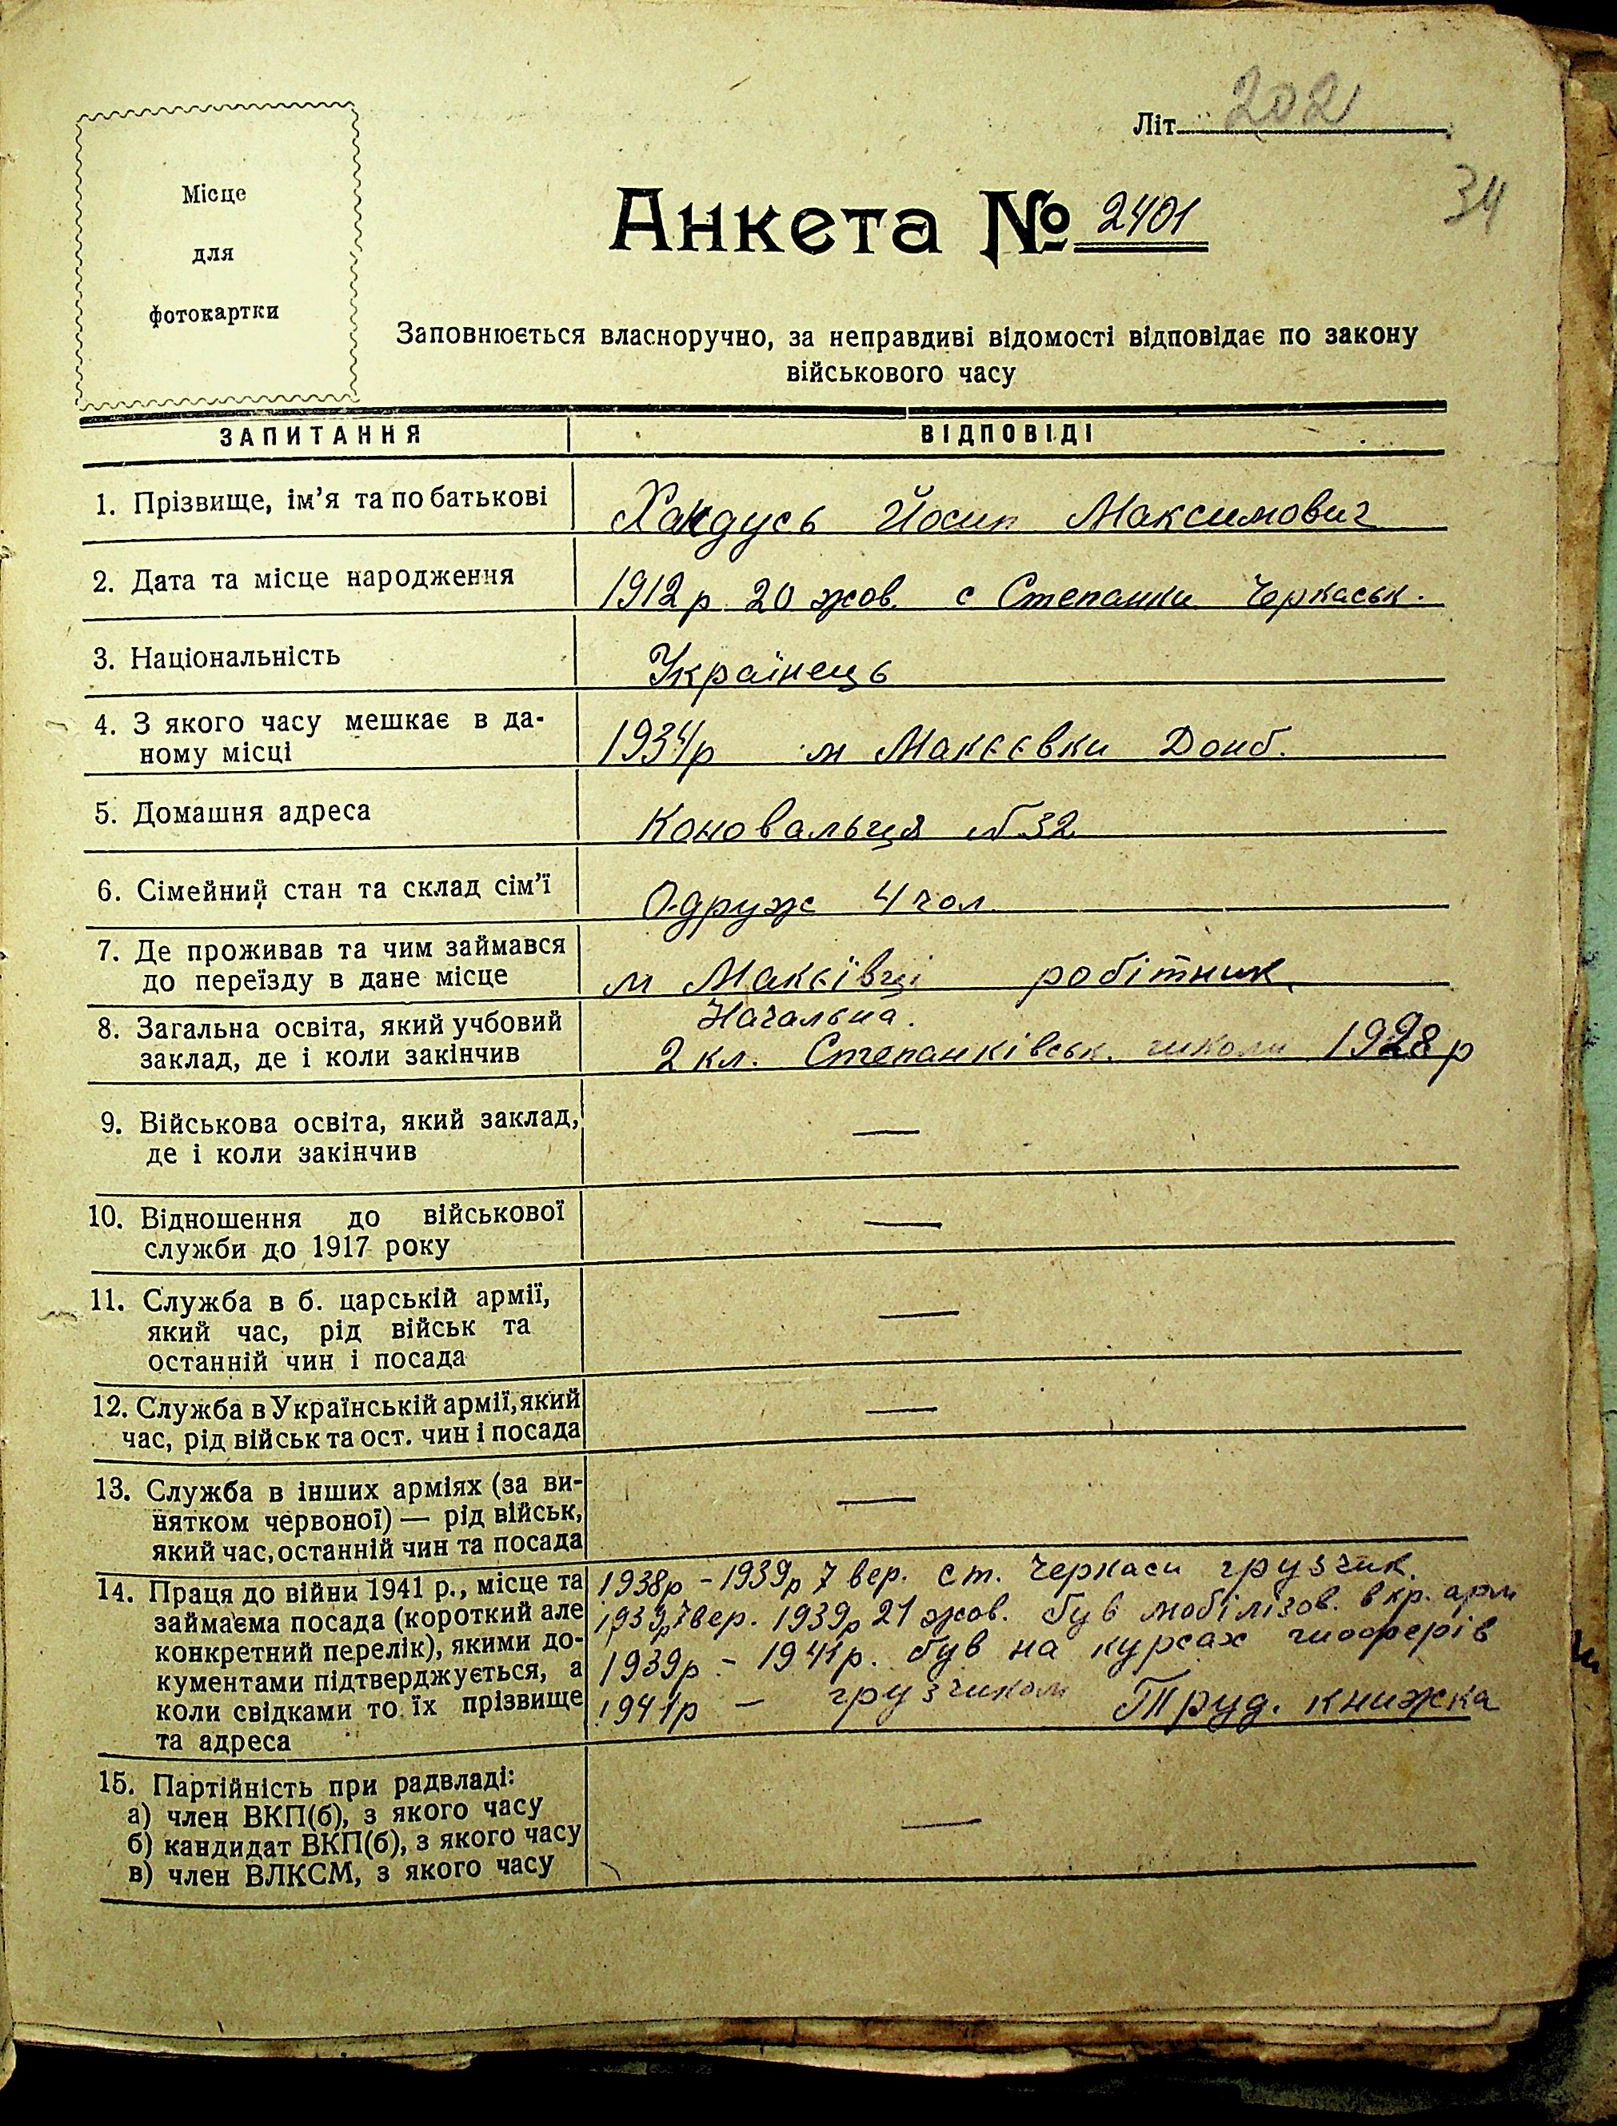 Літ. 202
34
Місце
для
фотокартки
Анкета № 2401
Заповнюється власноручно, за неправдиві відомості відповідає по закону
військового часу
ЗАПИТАННЯ ВІДПОВІДІ
1. Прізвище, ім'я та по батькові Хандусь Йосип Максимович
2. Дата та місце народження 1912р 20 жов. с Степанки Черкаськ.
3. Національність Українець
4. З якого часу мешкає в да-
ному місці 1934р м Макєєвки Донб.
5. Домашня адреса Коновальця №32
6. Сімейний стан та склад сім'ї Одруж 4 чол
7. Де проживав та чим займався
до переїзду в дане місце м Макєївці робітник
8. Загальна освіта, який учбовий Начальна.
заклад, де і коли закінчив 2 кл. Степанківськ. школи 1928р
9. Військова освіта, який заклад, —
де і коли закінчив
10. Відношення до військової —
служби до 1917 року
11. Служба в б. царській армії, —
який час, рід військ та
останній чин і посада
12. Служба в Українській армії, який —
час, рід військ та ост. чин і посада
13. Служба в інших арміях (за ви- —
нятком червоної) — рід військ,
який час, останній чин та посада
14. Праця до війни 1941 р., місце та 1938р - 1939р 7 вер. ст. Черкаси грузчик.
займаєма посада (короткий але 1939р 7вер. 1939р 21 жов. був мобілізов. в кр. арм
конкретний перелік), якими до- 1939р. - 1941р. був на курсах шоферів
кументами підтверджується, а 1941р - грузчиком Труд. книжка
коли свідками то їх прізвище
та адреса
15. Партійність при радвладі: —
а) член ВКП(б), з якого часу
б) кандидат ВКП(б), з якого часу
в) член ВЛКСМ, з якого часу